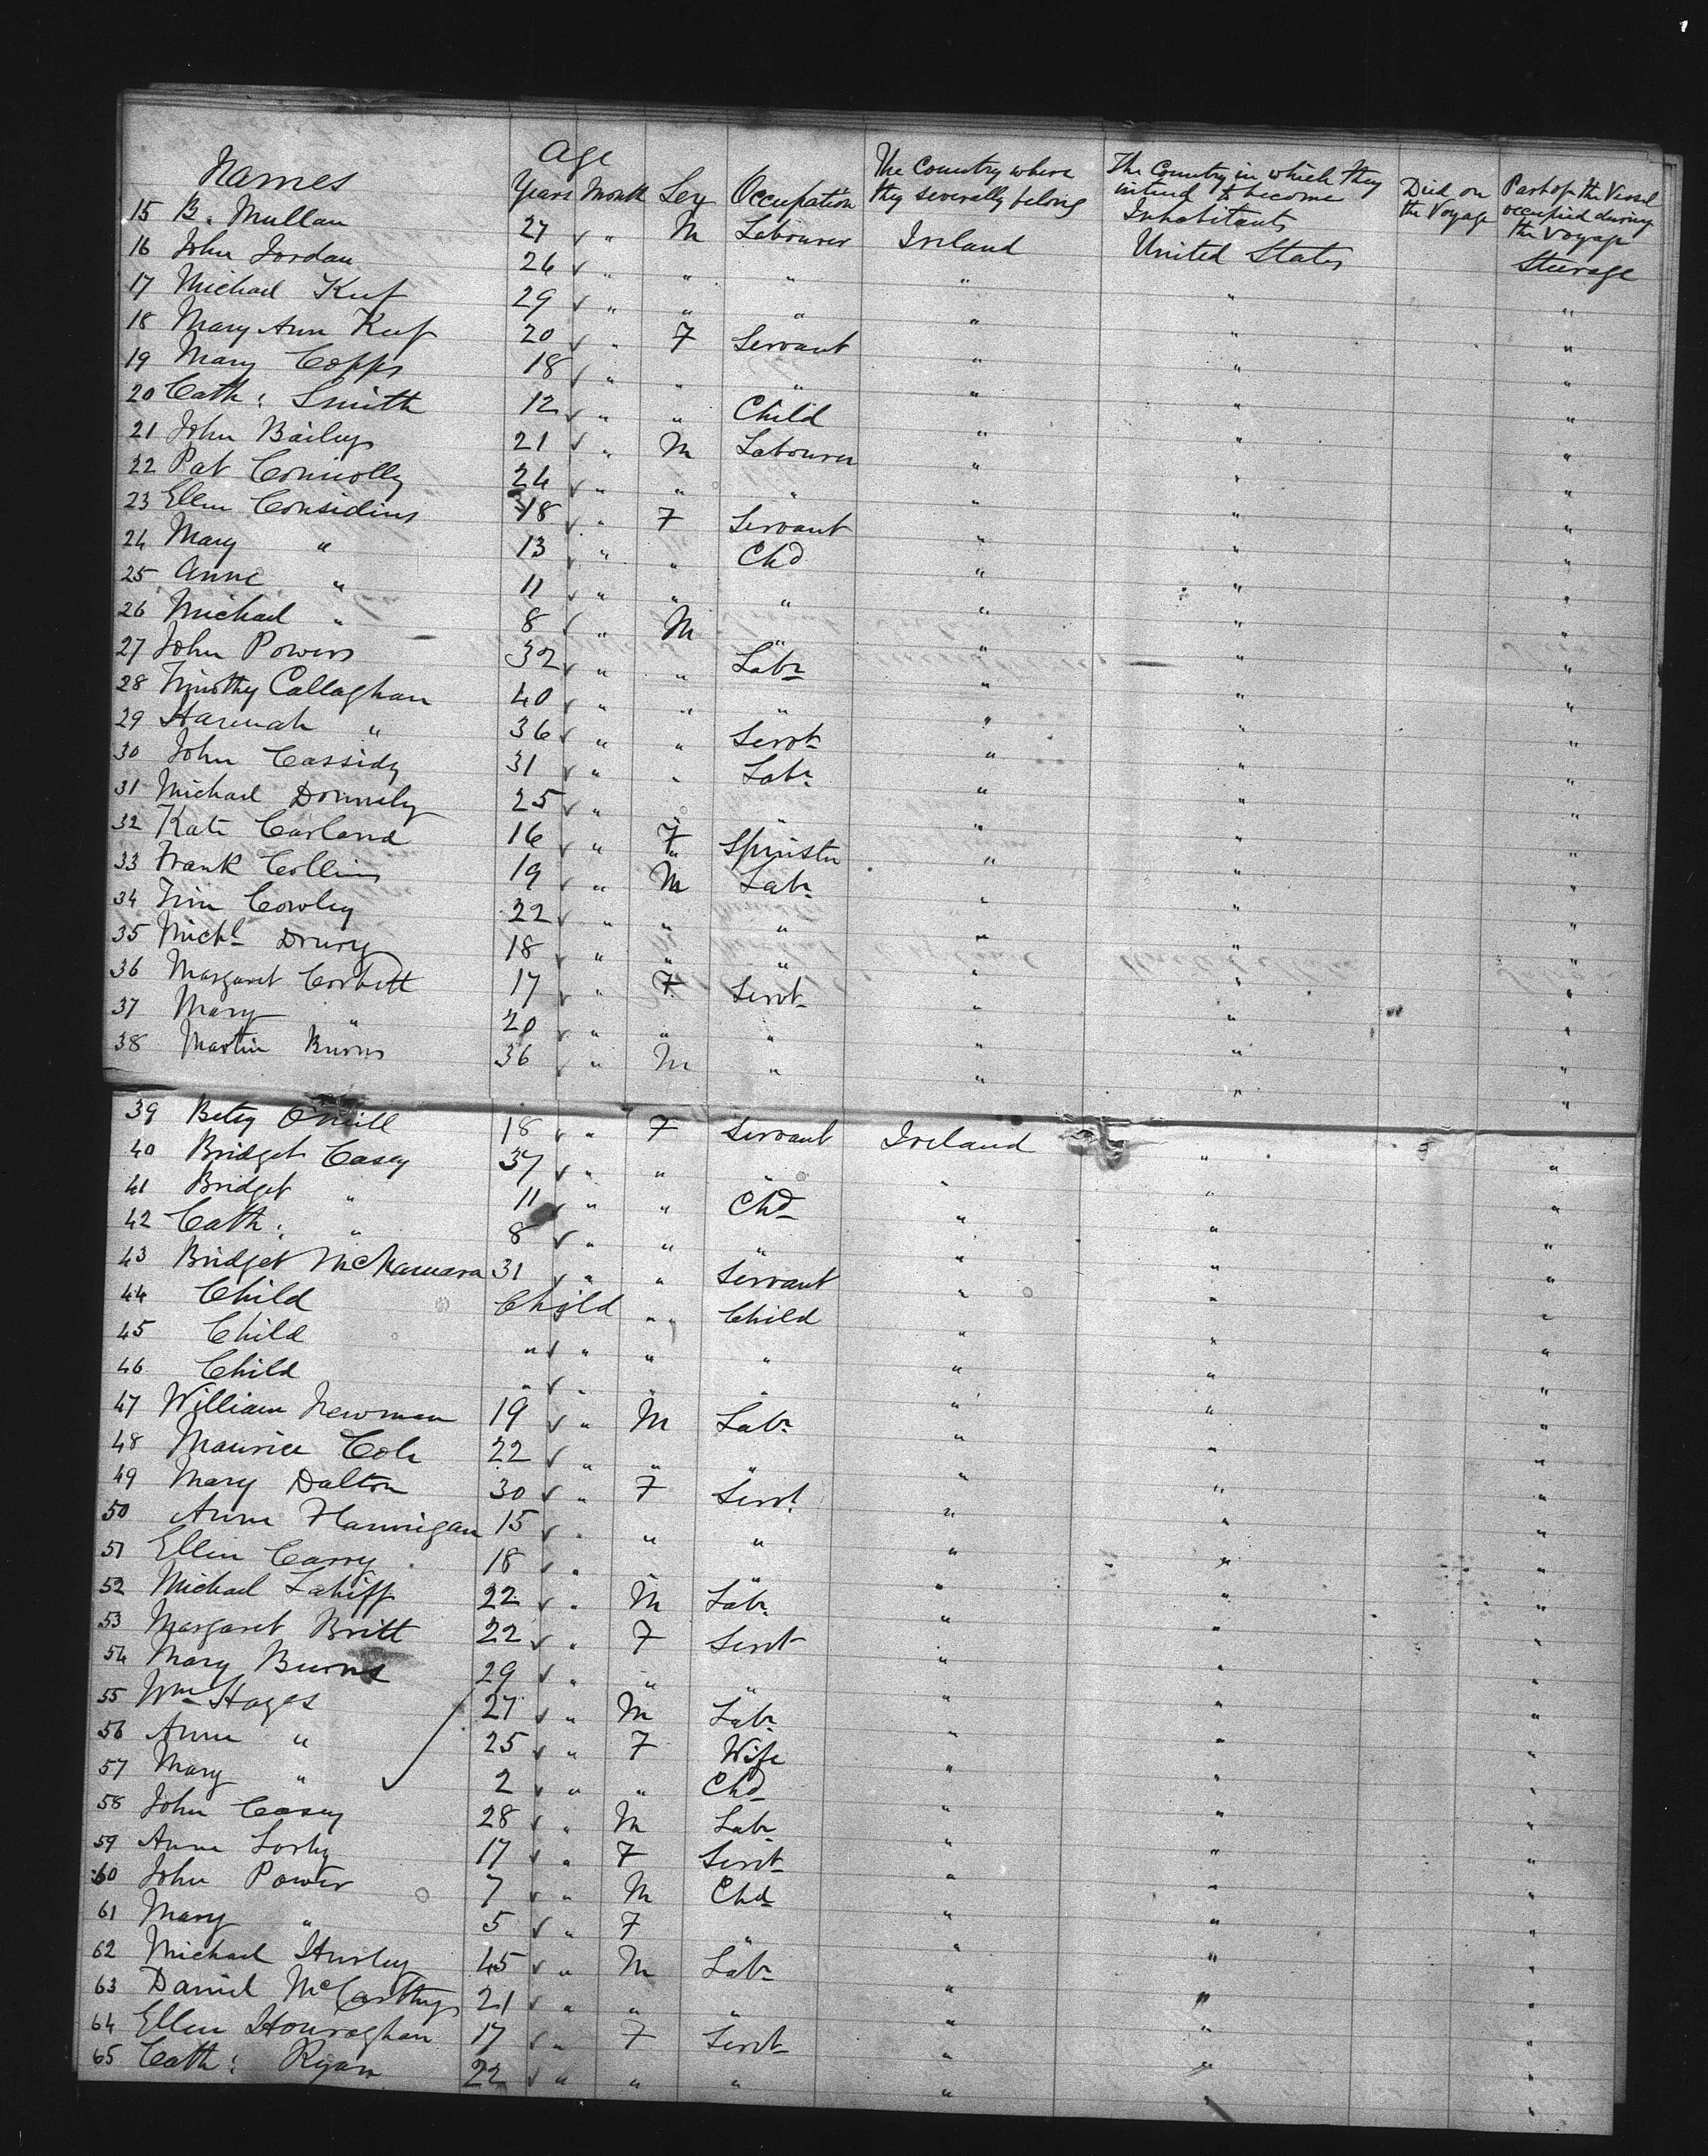 Names Age Years Month Sex Occupation The Country where they severally belong The Country in which they intend to become Inhabitants Died on the Voyage Part of the Vessel occupied during the voyage
15 B. Mullan 27 " M Labourer Ireland United States Steerage
16 John Jordan 26 " " " " " "
17 Michael Keef 29 " " " " " "
18 Mary Ann Keef 20 " F Servant " " "
19 Mary Copps 18 " " " " " "
20 Cath: Smith 12 " " Child " " "
21 John Baileys 21 " M Labourer " " "
22 Pat Connolly 24 " " " " " "
23 Ellen Considins 18 " F Servant " " "
24 Mary " 13 " " Chd " " "
25 Anne " 11 " " " " " "
26 Michael " 8 " M " " " "
27 John Powers 32 " " Labr " " "
28 Timothy Callaghan 40 " " " " " "
29 Hannah " 36 " " Servt " " "
30 John Cassidy 31 " " Labr " " "
31 Michael Donnely 25 " " " " " "
32 Kate Carland 16 " F Spinster " " "
33 Frank Collins 19 " M Labr " " "
34 Tim Cowley 22 " " " " " "
35 Michl Drury 18 " " " " " "
36 Margaret Corbett 17 " F Servt " " "
37 Mary " 20 " " " " " "
38 Martin Burns 36 " M " " " "
39 Betsy O'Neill 18 " F Servant Ireland " "
40 Bridget Casey 37 " " " " " "
41 Bridget " 11 " " Chd " " "
42 Cath: " 8 " " " " " "
43 Bridget McNamara 31 " " Servant " " "
44 Child Child " " Child " " "
45 Child " " " " " " "
46 Child " " " " " " "
47 William Newman 19 " M Labr " " "
48 Maurice Cole 22 " " " " " "
49 Mary Dalton 30 " F Servt " " "
50 Anne Hannigan 15 " " " " " "
51 Ellen Carry 18 " " " " " "
52 Michael Lahiff 22 " M Labr " " "
53 Margaret Britt 22 " F Servt " " "
54 Mary Burns 29 " " " " " "
55 Wm Hayes 27 " M Labr " " "
56 Anne " 25 " F Wife " " "
57 Mary " 2 " " Chd " " "
58 John Casey 28 " M Labr " " "
59 Anne 17 " F Servt " " "
60 John Power 7 " M Chd " " "
61 Mary " 5 " F " " " "
62 Michael Hurley 45 " M Labr " " "
63 Daniel McCarthy 21 " " " " " "
64 Ellen Houraghan 17 " F Servt " " "
65 Cath: Ryan 22 " " " " " "